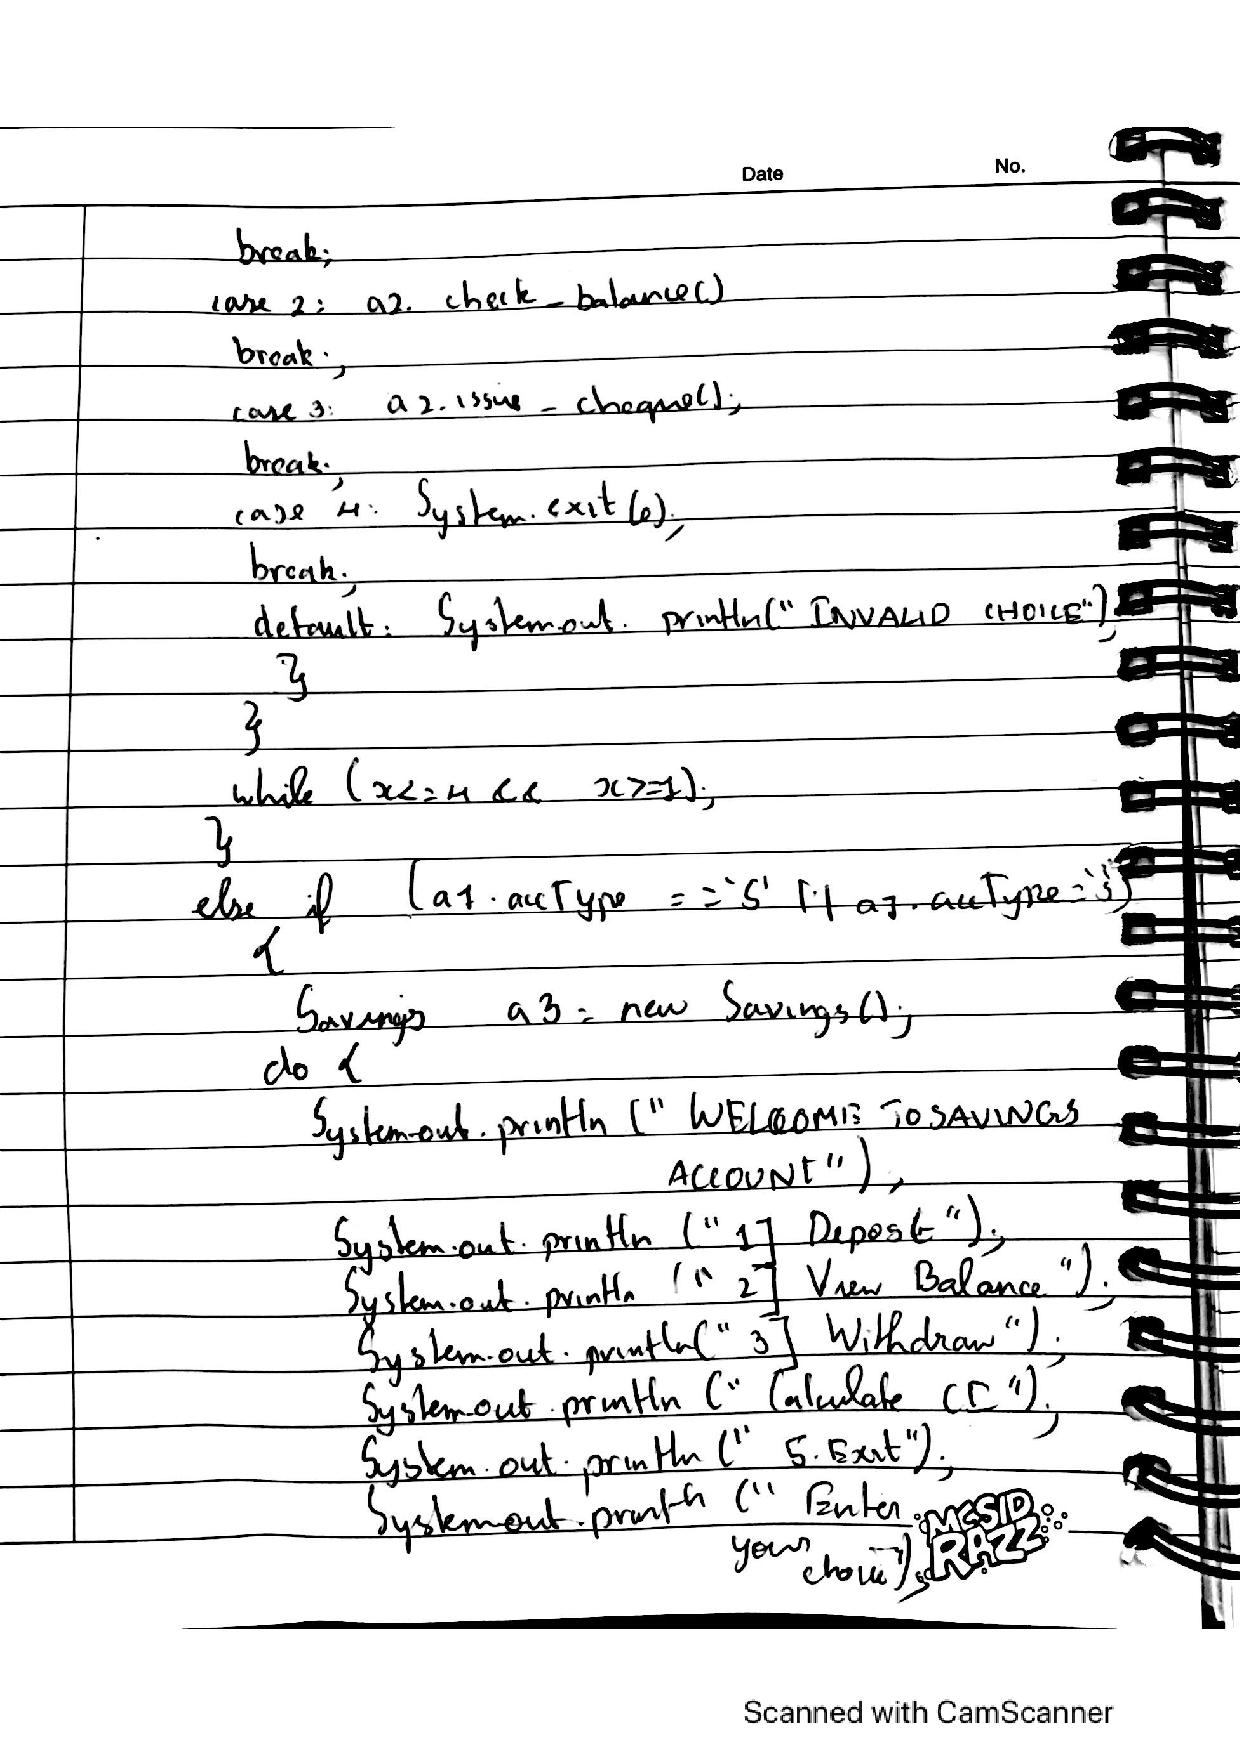 Date No.
break;
case 2: a2. check_balance()
break;
case 3: a2.issue_cheque();
break;
case 4: System.exit(0);
break;
default: System.out. println(" INVALID CHOICE");
}
}
while (x<=4 && x>=1);
}
else if (a1.accType =='S' || a1.accType='s')
{
Savings a3 = new Savings();
do {
System.out.println (" WELCOME TO SAVINGS
ACCOUNT");
System.out.println (" 1] Deposit");
System.out.println (" 2] View Balance");
System.out.println(" 3] Withdraw");
System.out.println (" Calculate CI");
System.out.println (" 5. Exit");
System.out.println (" Enter
your choice");
MCSID
RAZZ
Scanned with CamScanner